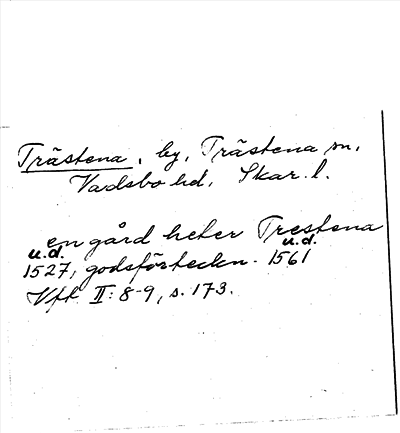 Trästena, by, Trästena sn,
Vadsbo hd, Skar. l.
en gård heter Trestena
u.d. u.d.
1527, godsförteckn. 1561
Vft. II: 8-9, s. 173.